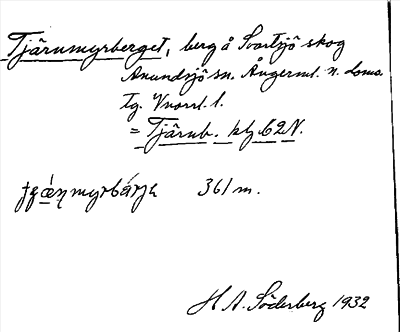 Tjärnmyrberget, berg å Svartsjö skog
Anundsjö sn. Ångerml. n. doms.
tg. Vnorrl. l.
= Tjärnb. kbl. 62 N.
361 m.
H A. Söderberg 1932